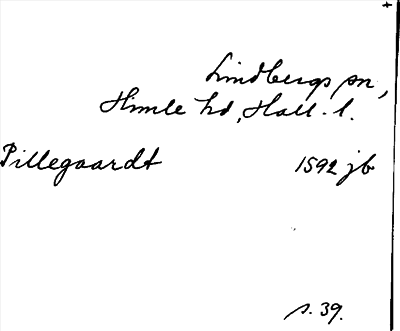 Lindbergs sn,
Himle hd, Hall. l.
Pillegaardt 1592 jb
s. 39.